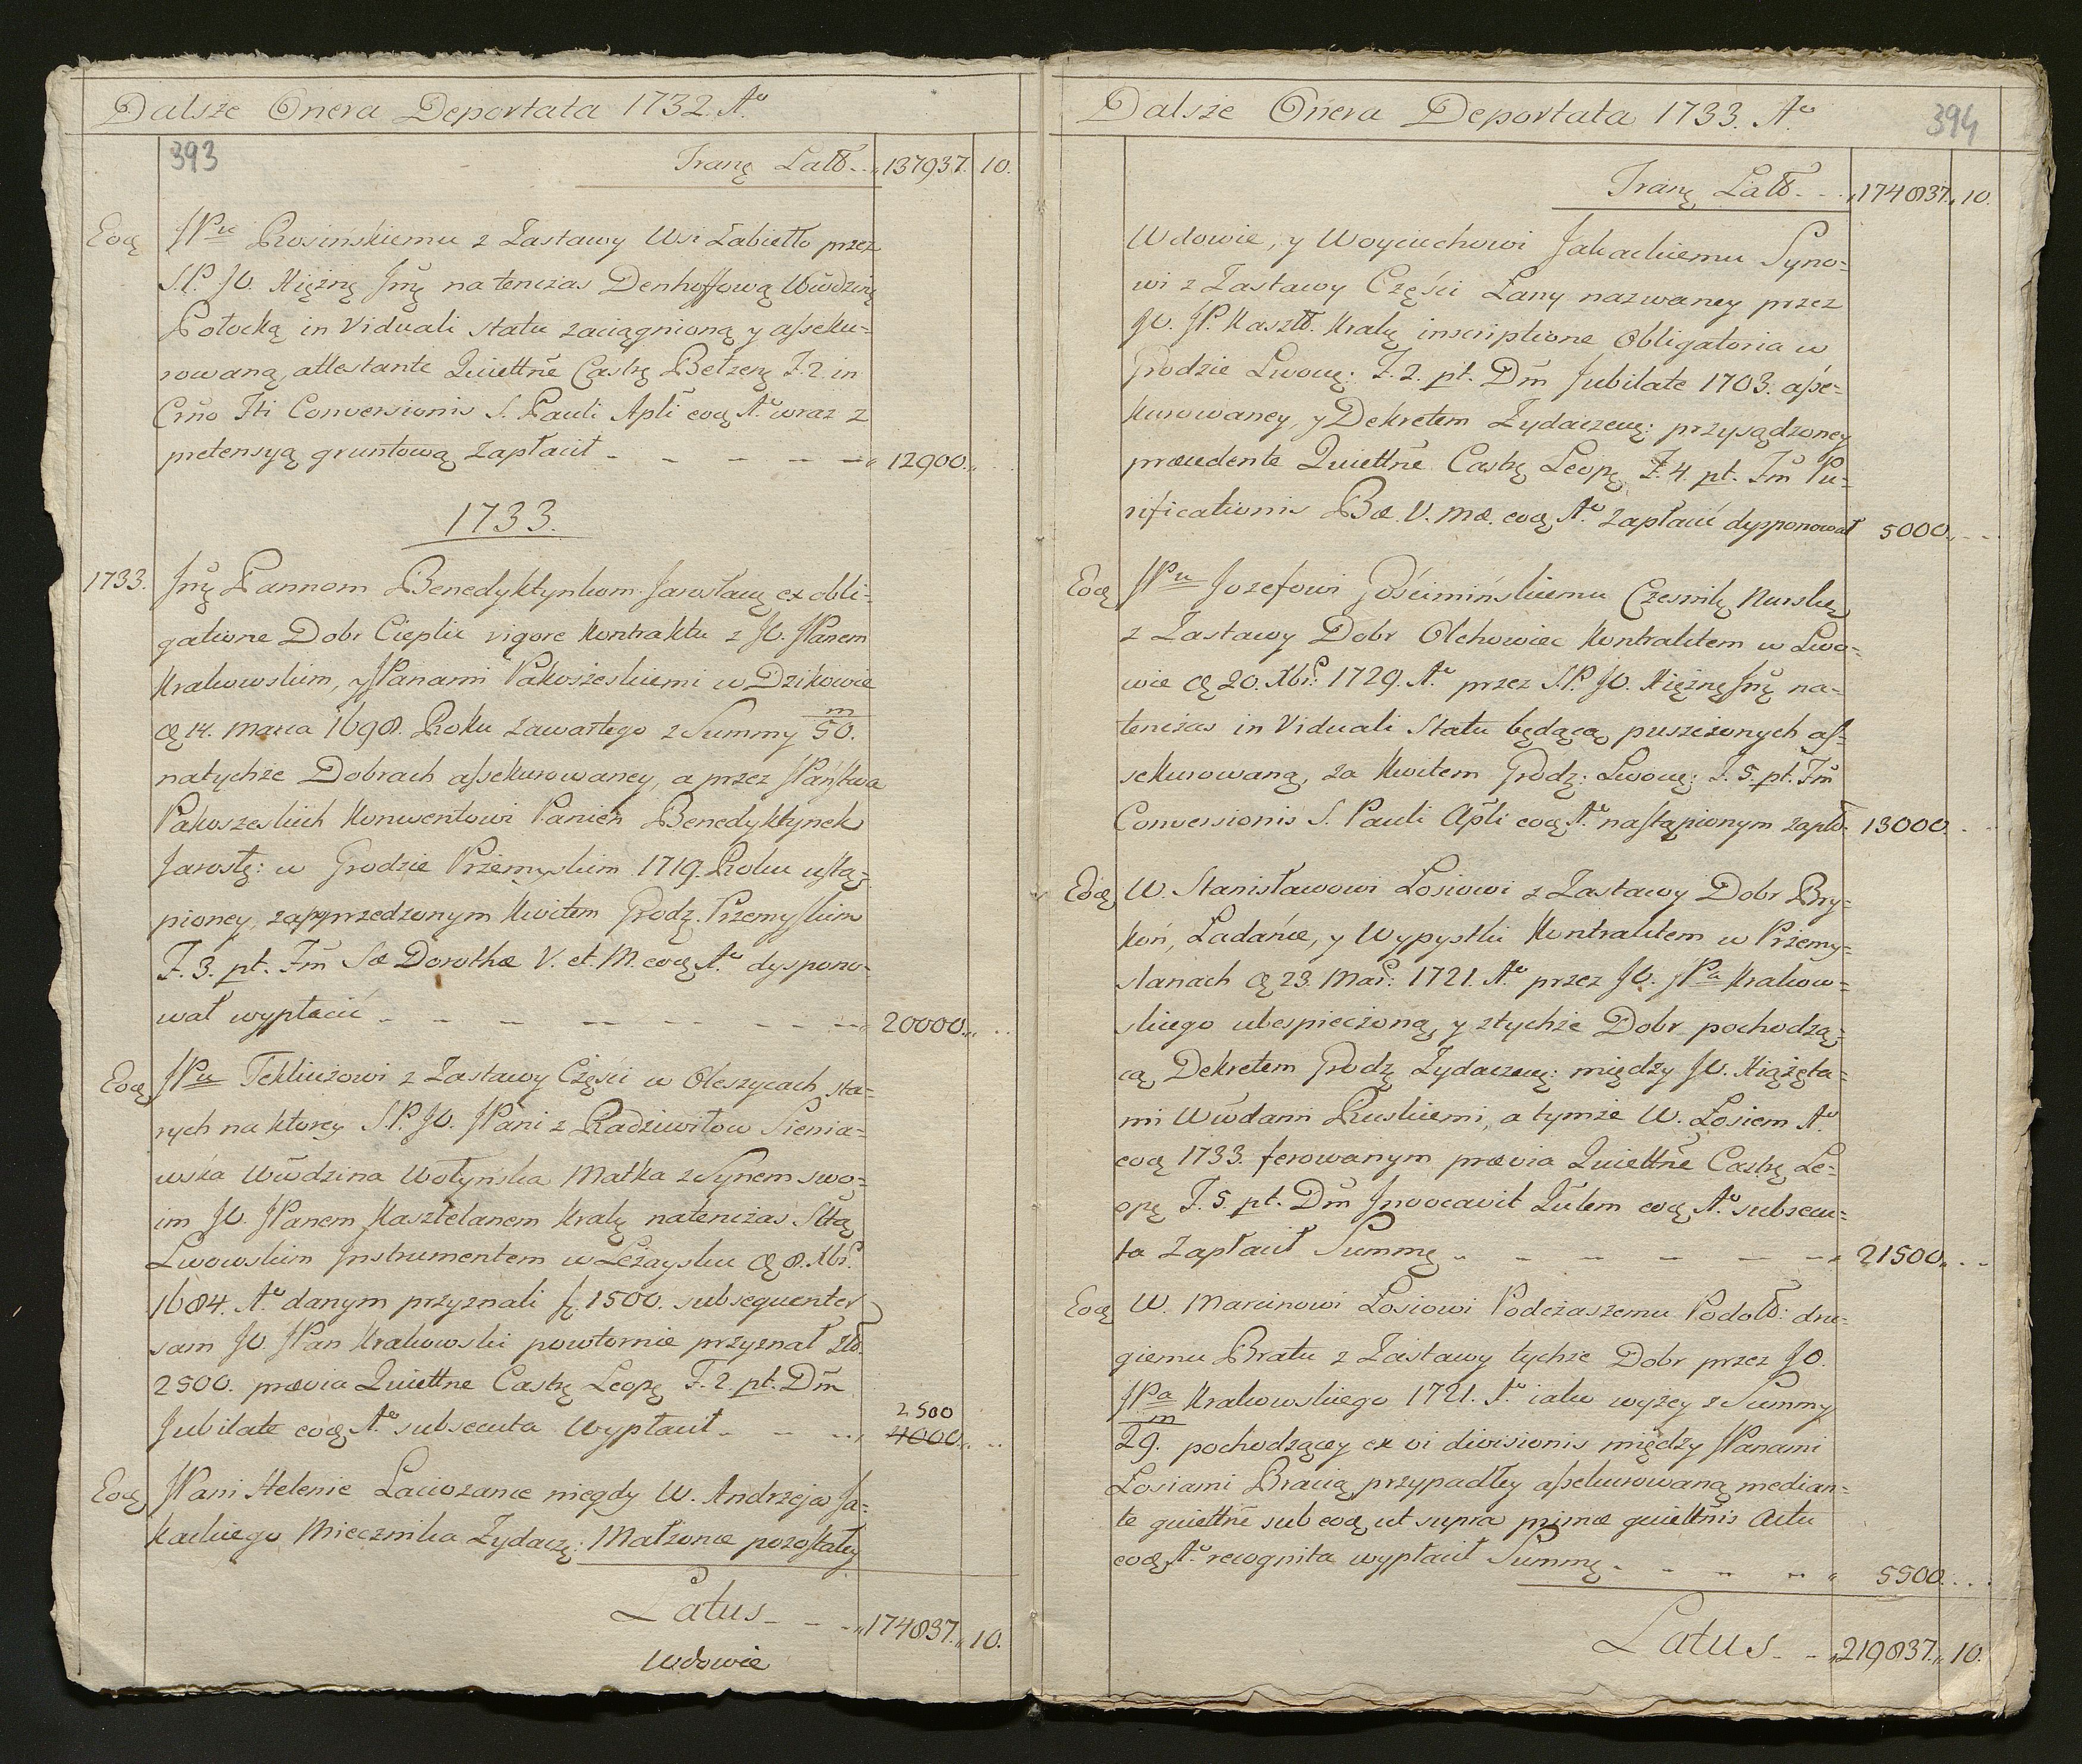 Dalsze Onera Deportata 1732. Aº
393
Tranę Latꝰ - - „137937. 10.
Eoꝗ JPu Rosińskiemu z Zastawy Wsi Łabietło przez
S.P. JO. Xiężnę Jmę natenczas Denhoffową Wwdzinę
Połocką in Viduali statu zaciągnioną y asseku=
rowaną, attestante Quiettñe Castrę Bełzenę F. 2. in
Crño Fti Conversionis S. Pauli Apłi eoꝗ Aº wraz z
pretensyą gruntową Zapłacił - - - - - - „ 12900.„
1733.
1733. Jmę Pannom Benedyktynkom Jarosławę ex obli=
gatione Dobr Cieplic vigore Kontraktu z JO. JPanem
Krakowskim, y JPanami Pakoszeskiemi w Dzikowie
dę 14. Marca 1698. Roku zawartego z Summy m/50.
natychże Dobrach assekurowaney, a przez JPaństwa
Pakoszeskich Konwentowi Panien Benedyktynek
Jarosłę: w Grodzie Przemyskim 1719. Roku ustą=
pioney, zapoprzedzonym Kwitem Grodz. Przemyskim
F. 3. pt. Fm̃ Sæ Dorothæ V. et. M. eoꝗ Aº dyspono=
wał wypłacić - - - - - - - - „ 20000.„ . .
Eoꝗ JPu Tekliczowi z Zastawy Części w Oleszycach sta=
rych na ktorey S.P. JO. JPani z Radziwiłow Sienia=
wska Wwdzina Wołyńska Matka z Synem swo=
im JO. JPanem Kasztelanem Krakę natenczas Sttą
Lwowskim Instrumentem w Leżaysku dę 8. Xbrs.
1684. Aº danym przyznali fꝉ 1500. subsequenter
sam JO. JPan Krakowski powtornie przyznał złł.
2500. prævia Quiettñe Castrę Leopę F. 2. pt. Dm̃
2500
Jubilate eoꝗ Aº subsecuta Wypłacił - - - - „ 4000.„ . .
Eoꝗ JPani Helenie Laciozance niegdy W. Andrzeja Ja=
kackiego Miecznika Zydaczę: Małzonce pozostałey
Latus - - - „174837.„ 10.
Wdowie
Dalsze Onera Deportata 1733. Aº
394
Tranę Latꝰ - - „174837.„ 10.
Wdowie, y Woyciechowi Jakackiemu Syno=
wi z Zastawy Części Lany nazwaney przez
JO. JP. Kasztł. Krakę inscriptione Obligatoria w
Grodzie Lwowę: F. 2. pt. Dm̃ Jubilate 1703. asse=
kurowaney, y Dekretem Zydaczewę: przysądzoney
præcedente Quiettñe Castrę Leopę F. 4. pt. Fm̃ Pu=
rificationis Bæ. V. Mæ. eoꝗ Aº Zapłacić dysponował 5000.„ - -
Eoꝗ JPu Jozefowi Gościmińskiemu Czesnikę Nurskę
z Zastawy Dobr Olchowiec Kontraktem w Lwo=
wie dę 20. Xbrs: 1729. Aº przez S.P. JO. Xiężnę Jmę na=
tenczas in Viduali Statu będącą puszczonych as=
sekurowaną, za Kwitem Grodz: Lwowę: F. 5. pt. Fm̃
Conversionis S. Pauli Apłi eoꝗ Aº nastąpionym zapłł. 13000. . .
Eoꝗ W. Stanisławowi Łosiowi z Zastawy Dobr Bry=
koń, Ładańce, y Wypystki Kontraktem w Przemy=
słanach dę 23. Mars: 1721. Aº przez JO. JPa Krakow=
skiego ubespieczoną, y ztychże Dobr pochodzą=
cą Dekretem Grodzę Zydaczewę: między JO. Xiążęta=
mi Wwdami Ruskiemi, a tymże W. Łosiem Aº
eoꝗ 1733. ferowanym prævia Quiettñe Castrę Le=
opę F. 5. pt. Dm̃ Invocavit Qutem eoꝗ Aº subsecu=
ta Zapłacił Summę „ - - - - - „ 21500.„ . .
Eoꝗ W. Marcinowi Łosiowi Podczaszemu Podolł: dru=
giemu Bratu z Zastawy tychże Dobr przez JO.
JPa Krakowskiego 1721. Aº iako wyżey z Summy
m/29. pochodzącey ex vi divisionis między JPanami
Łosiami Bracią przypadłey assekurowaną median=
te quiettñe sub eoꝗ ut supra primæ quiettñis Actu
eoꝗ Aº recognita wypłacił Summę - - - - „ 5500. . . .
Latus - - „219837.„ 10.